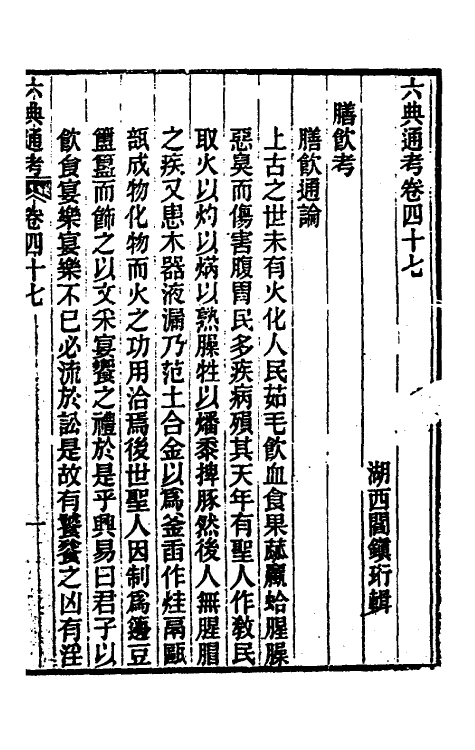 六典通考卷四十七
湖西閻鎮珩輯
膳飲考
膳飲通論
上古之世未有火化人民茹毛飲血食果蓏蠃蛤腥臊
惡臭而傷害腹胃民多疾病殞其天年有聖人作教民
取火以灼以焫以熟臊牲以燔黍捭豚然後人無腥膶
之疾又患木器液漏乃范土合金以爲釜甬作烓鬲甌
瓿成物化物而火之功用洽焉後世聖人因制爲籩豆
簠簋而飾之以文采宴饗之禮於是乎興易曰君子以
飲食宴樂宴樂不已必流於訟是故有饕餮之凶有淫
六典通考 卷四十七 一